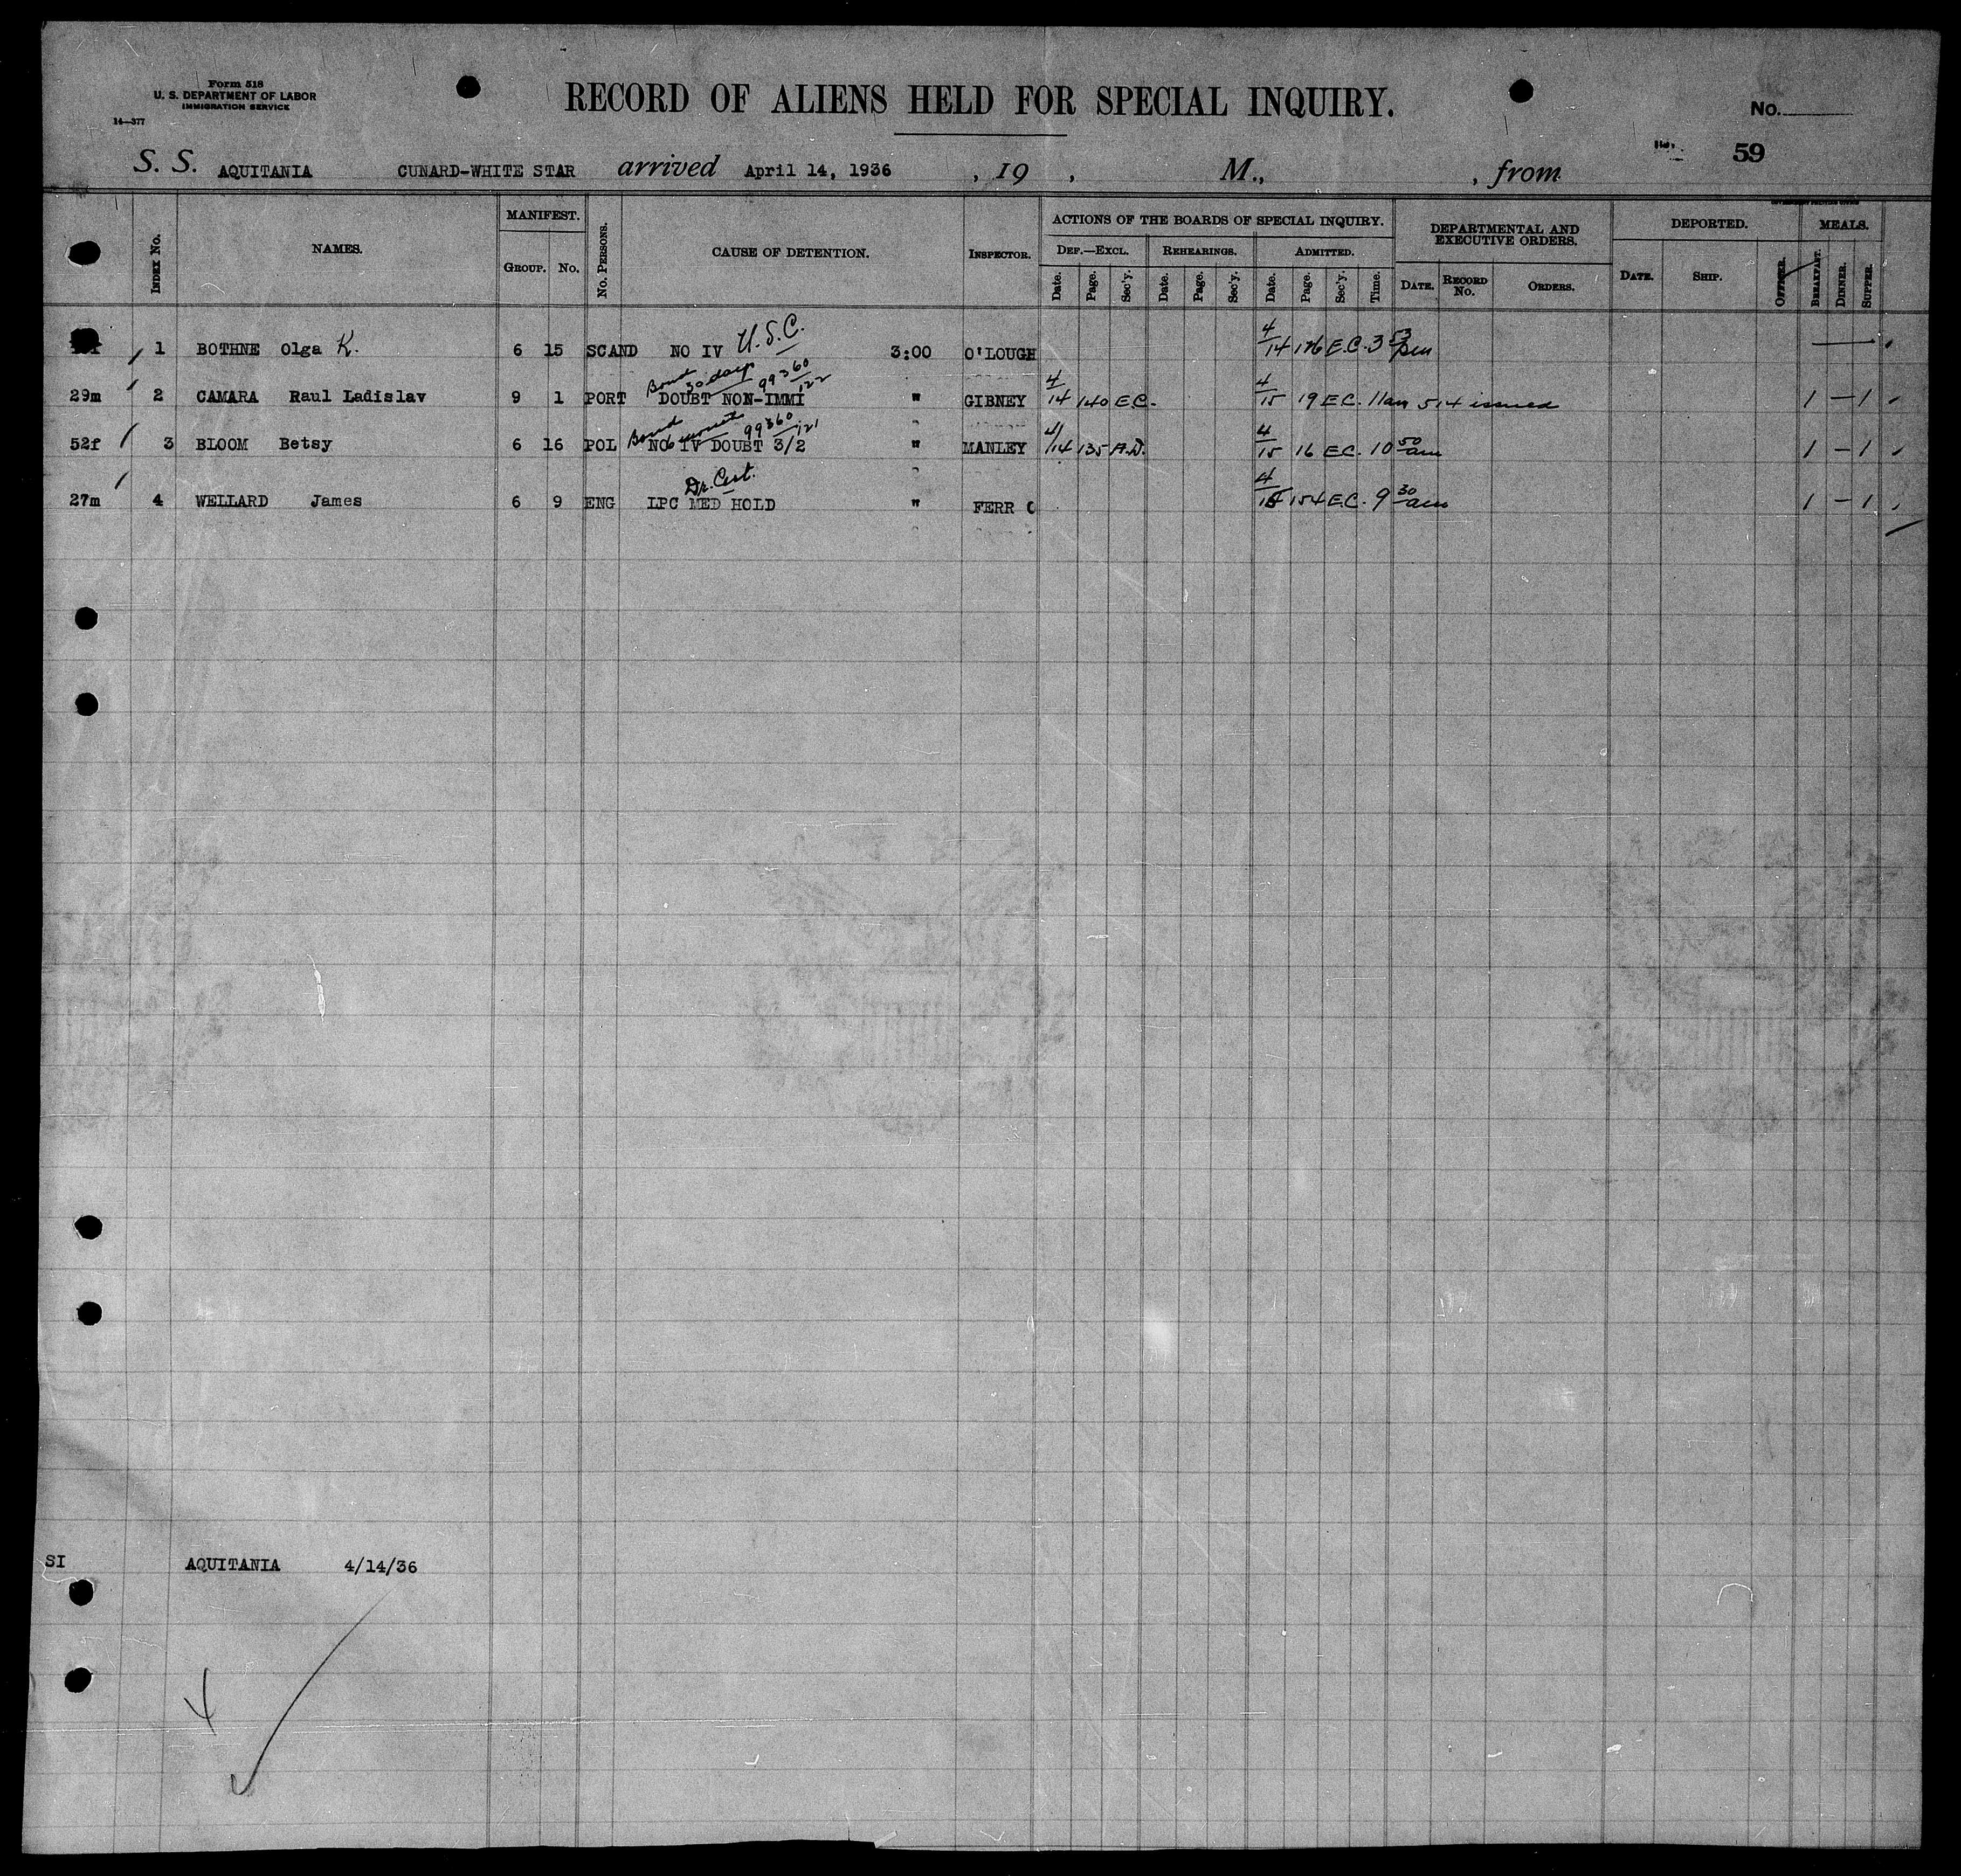 Form 518
U. S. DEPARTMENT OF LABOR
IMMIGRATION SERVICE
14—377
RECORD OF ALIENS HELD FOR SPECIAL INQUIRY.
No.
59
S. S. AQUITANIA CUNARD-WHITE STAR arrived April 14, 1936 , 19 , M., , from
INDEX No. NAMES. MANIFEST. GROUP. No. No. PERSONS. CAUSE OF DETENTION. INSPECTOR. ACTIONS OF THE BOARDS OF SPECIAL INQUIRY. DEPARTMENTAL AND EXECUTIVE ORDERS. DEPORTED. MEALS.
DEF.—EXCL. REHEARINGS. ADMITTED.
Date. Page. Sec'y. Date. Page. Sec'y. Date. Page. Sec'y. Time. DATE. RECORD No. ORDERS. DATE. SHIP. OFFICER. BREAKFAST. DINNER. SUPPER.
1 BOTHNE Olga K. 6 15 SCAND NO IV U.S.C. 3:00 O'LOUGH 4/14 E.C. 3 pm
Bond 30 days 99360/122
29m 2 CAMARA Raul Ladislav 9 1 PORT DOUBT NON-IMMI " GIBNEY 4/14 140 E.C. 4/15 19 E.C. 11am 514 issued 1 — 1
Bond 6 99360/121
52f 3 BLOOM Betsy 6 16 POL NO IV DOUBT 3/2 " MANLEY 4/14 135 A.D. 4/15 16 E.C. 10 50 am 1 — 1
Dr. Cert.
27m 4 WELLARD James 6 9 ENG LPC MED HOLD " FERR C 4/15 154 E.C. 9 30 am 1 — 1
SI AQUITANIA 4/14/36
4